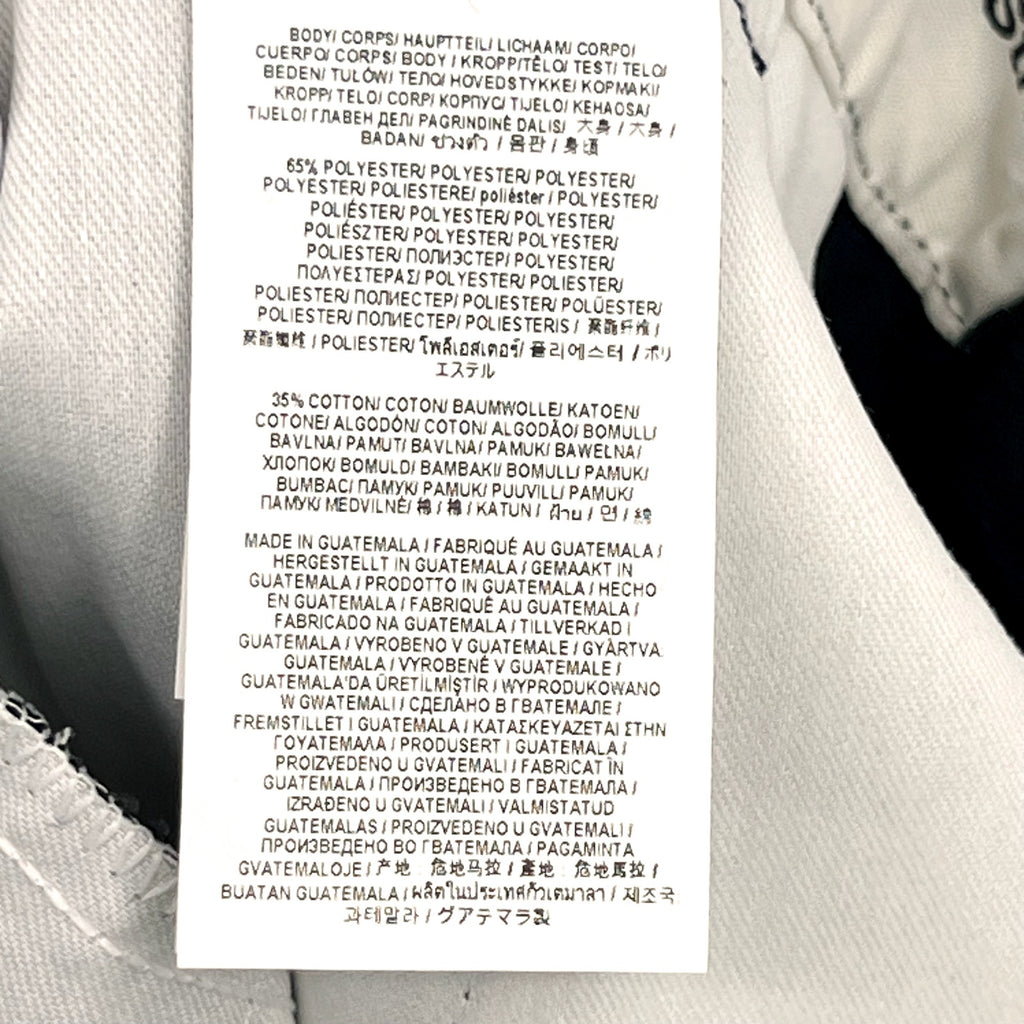 BODY/ CORPS/ HAUPTTEIL/ LICHAAM/ CORPO/
CUERPO/ CORPS/ BODY / KROPP/TÊLO/ TEST/ TELO/
BEDEN/ TUŁÓW/ ТЕЛО/ HOVEDSTYKKE/ ΚΟΡΜΑΚΙ/
KROPP/ TELO/ CORP/ КОРПУС/ TIJELO/ KEHAOSA/
TIJELO/ ГЛАВЕН ДЕЛ/ PAGRINDINĖ DALIS/ 大身 / 大身 /
BADAN/ ช่วงตัว / 몸판 / 身頃
65% POLYESTER/ POLYESTER/ POLYESTER/
POLYESTER/ POLIESTERE/ poliéster / POLYESTER/
POLIÉSTER/ POLYESTER/ POLYESTER/
POLIÉSZTER/ POLYESTER/ POLYESTER/
POLIESTER/ ПОЛИЭСТЕР/ POLYESTER/
ΠΟΛΥΕΣΤΕΡΑΣ/ POLYESTER/ POLIESTER/
POLIESTER/ ПОЛИЕСТЕР/ POLIESTER/ POLÜESTER/
POLIESTER/ ПОЛИЕСТЕР/ POLIESTERIS / 聚酯纤维 /
聚酯纖維 / POLIESTER/ โพลีเอสเตอร์/ 폴리에스터 / ポリ
エステル
35% COTTON/ COTON/ BAUMWOLLE/ KATOEN/
COTONE/ ALGODÓN/ COTON/ ALGODÃO/ BOMULL/
BAVLNA/ PAMUT/ BAVLNA/ PAMUK/ BAWEŁNA/
ХЛОПОК/ BOMULD/ ΒΑΜΒΑΚΙ/ BOMULL/ PAMUK/
BUMBAC/ ПАМУК/ PAMUK/ PUUVILL/ PAMUK/
ПАМУК/ MEDVILNĖ/ 棉 / 棉 / KATUN / ฝ้าย / 면 / 綿
MADE IN GUATEMALA / FABRIQUÉ AU GUATEMALA /
HERGESTELLT IN GUATEMALA / GEMAAKT IN
GUATEMALA / PRODOTTO IN GUATEMALA / HECHO
EN GUATEMALA / FABRIQUÉ AU GUATEMALA /
FABRICADO NA GUATEMALA / TILLVERKAD I
GUATEMALA / VYROBENO V GUATEMALE / GYÁRTVA:
GUATEMALA / VYROBENÉ V GUATEMALE /
GUATEMALA'DA ÜRETİLMİŞTİR / WYPRODUKOWANO
W GWATEMALI / СДЕЛАНО В ГВАТЕМАЛЕ /
FREMSTILLET I GUATEMALA / ΚΑΤΑΣΚΕΥΑΖΕΤΑΙ ΣΤΗΝ
ΓΟΥΑΤΕΜΑΛΑ / PRODUSERT I GUATEMALA /
PROIZVEDENO U GVATEMALI / FABRICAT ÎN
GUATEMALA / ПРОИЗВЕДЕНО В ГВАТЕМАЛА /
IZRAĐENO U GVATEMALI / VALMISTATUD
GUATEMALAS / PROIZVEDENO U GVATEMALI /
ПРОИЗВЕДЕНО ВО ГВАТЕМАЛА / PAGAMINTA
GVATEMALOJE / 产地 : 危地马拉 / 產地 : 危地馬拉 /
BUATAN GUATEMALA / ผลิตในประเทศกัวเตมาลา / 제조국
과테말라 / グアテマラ製